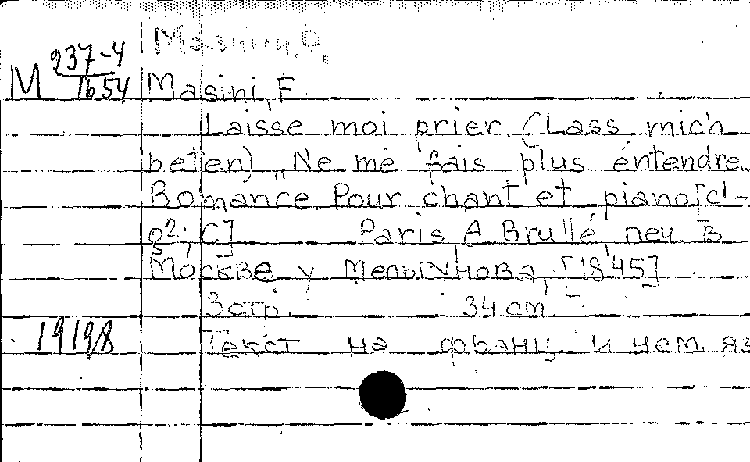 Мазини, Ф.
М 237-4
1654
Masini, F
Laisse moi prier (Lass mich
beten) „Ne me fais plus entendre
Romance Pour chant et piano [c1-
g2; C] Paris A Brullé, печ. в
Москве у Мельчнова, [1845]
3 стр. 34 см
19198
Текст на франц и нем яз